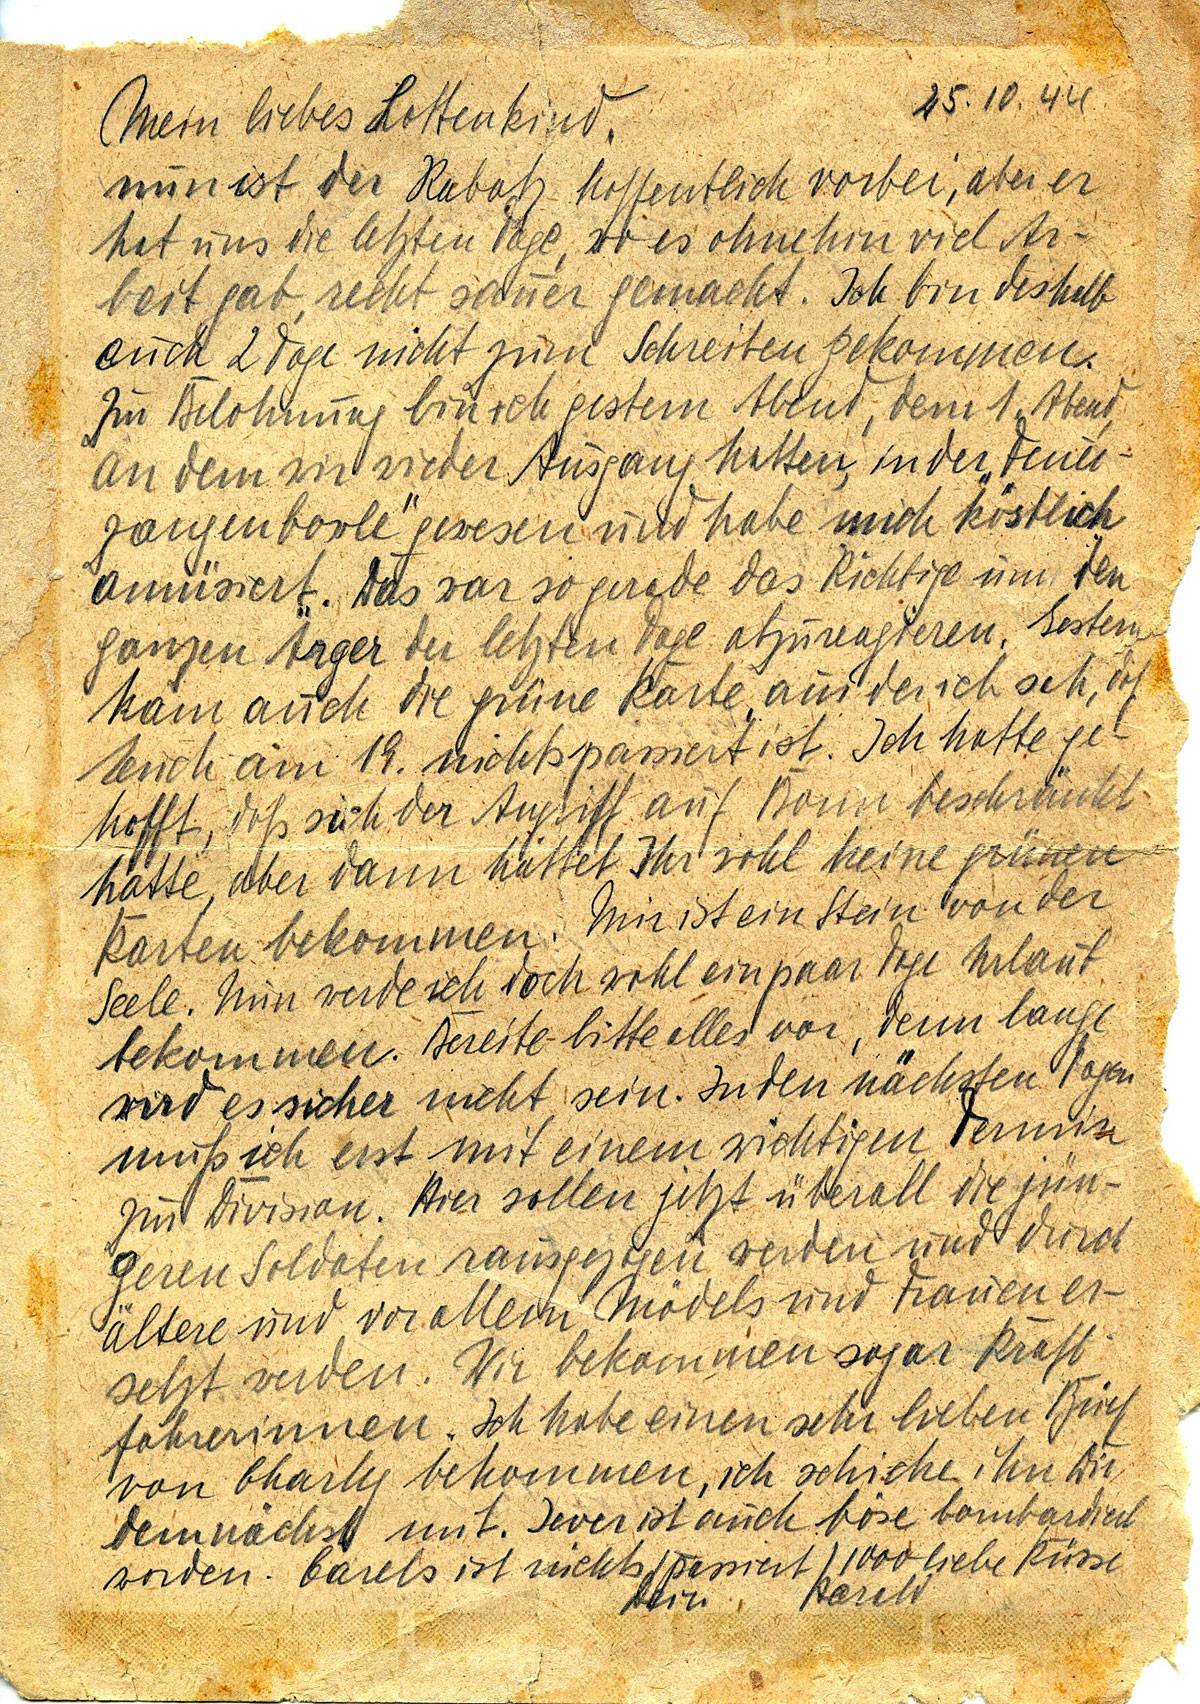 25.10.44
Mein liebes Lottenkind,
nun ist der Rabatz hoffentlich vorbei, aber er
hat uns die letzten Tage, wo es ohnehin viel Ar-
beit gab, recht sauer gemacht. Ich bin deshalb
auch 2 Tage nicht zum Schreiben gekommen.
Zur Belohnung bin ich gestern Abend, dem 1. Abend,
an dem wir wieder Ausgang hatten, in der "Feuer-
zangenbowle" gewesen und habe mich köstlich
amüsiert. Das war so gerade das Richtige um den
ganzen Ärger der letzten Tage abzureagieren. Gestern
kam auch die grüne Karte, aus der ich seh, daß
Euch am 19. nichts passiert ist. Ich hatte ge-
hofft, daß sich der Angriff auf Bonn beschränkt
hätte, aber dann hättet Ihr wohl keine grünen
Karten bekommen. Mir ist ein Stein von der
Seele. Nun werde ich doch wohl ein paar Tage Urlaub
bekommen. Bereite bitte alles vor, denn lange
wird es sicher nicht sein. In den nächsten Tagen
muß ich erst mit einem wichtigen Termin
zur Division. Hier sollen jetzt überall die jün-
geren Soldaten rausgezogen werden und durch
ältere und vor allem Mädels und Frauen er-
setzt werden. Wir bekommen sogar Kraft-
fahrerinnen. Ich habe einen sehr lieben Brief
von Charly bekommen, ich schicke ihn Dir
demnächst mit. Jever ist auch böse bombardiert
worden. Carels ist nichts passiert / 1000 liebe Küsse
Dein Harald